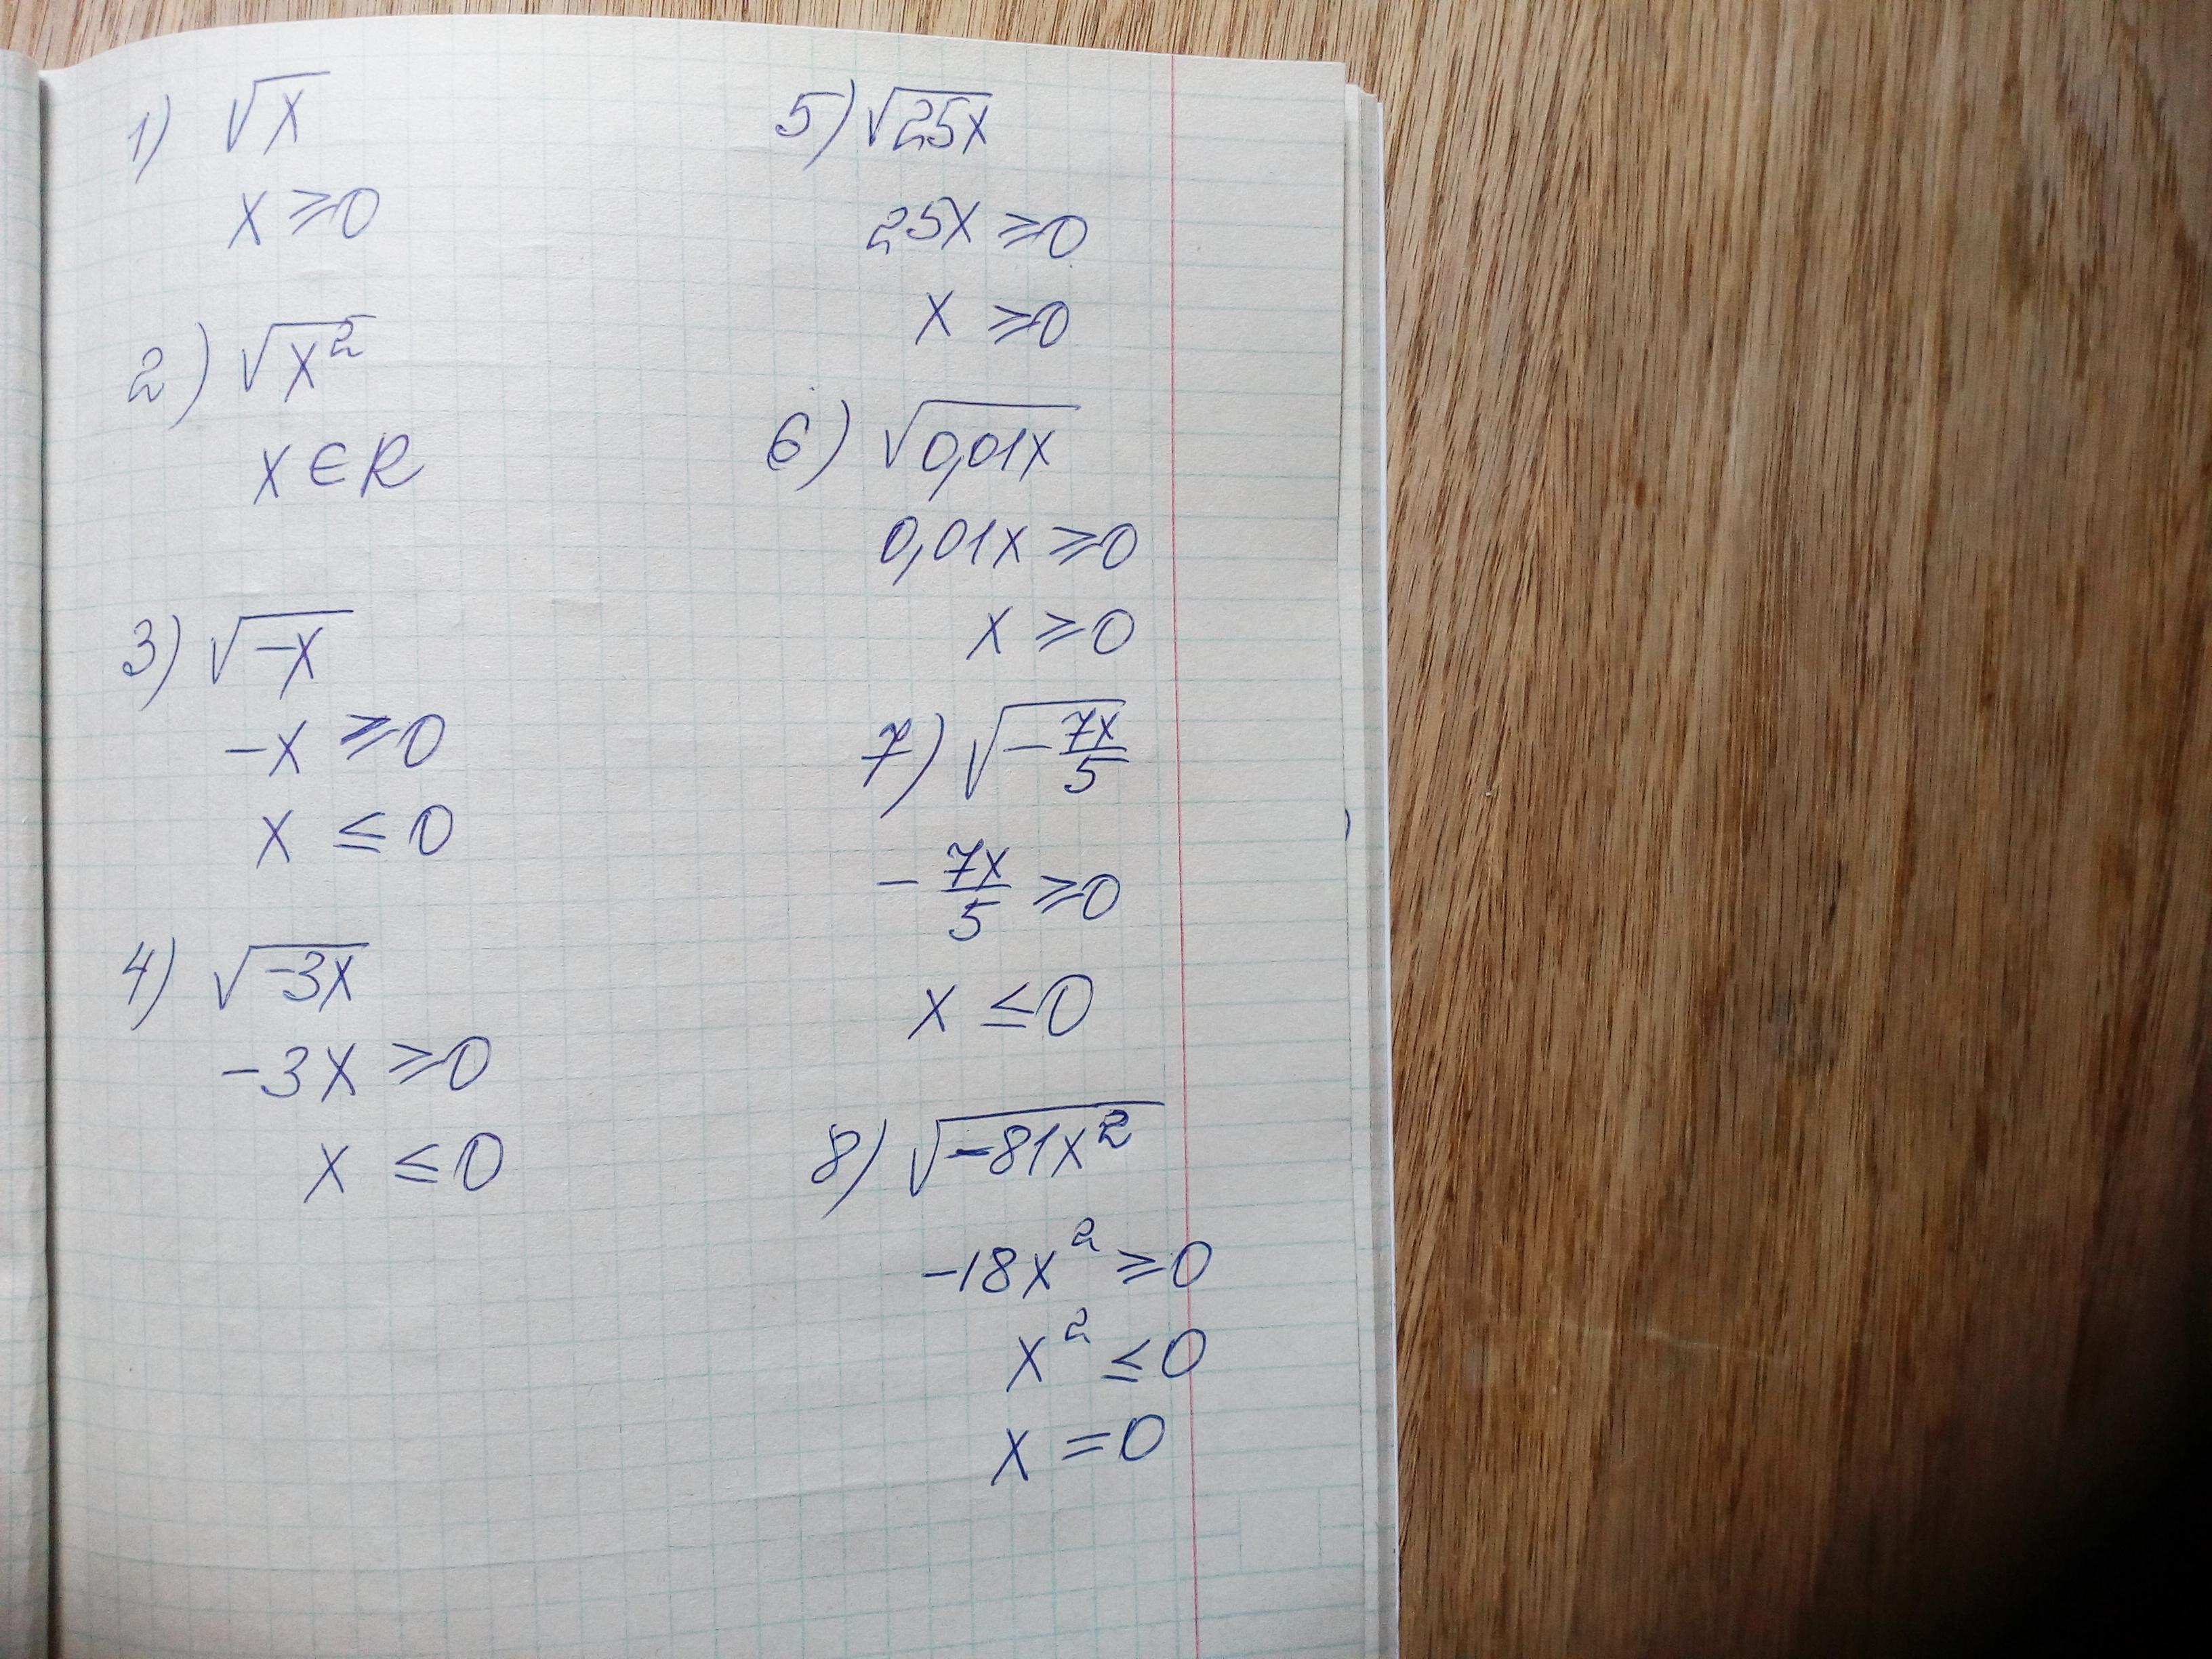 1) √x
x ⩾ 0
2) √x²
x ∈ R
3) √-x
-x ⩾ 0
x ≤ 0
4) √-3x
-3x ⩾ 0
x ≤ 0
5) √25x
25x ⩾ 0
x ⩾ 0
6) √0,01x
0,01x ⩾ 0
x ⩾ 0
7) √-7x/5
-7x/5 ⩾ 0
x ≤ 0
8) √-81x²
-18x² ⩾ 0
x² ≤ 0
x = 0